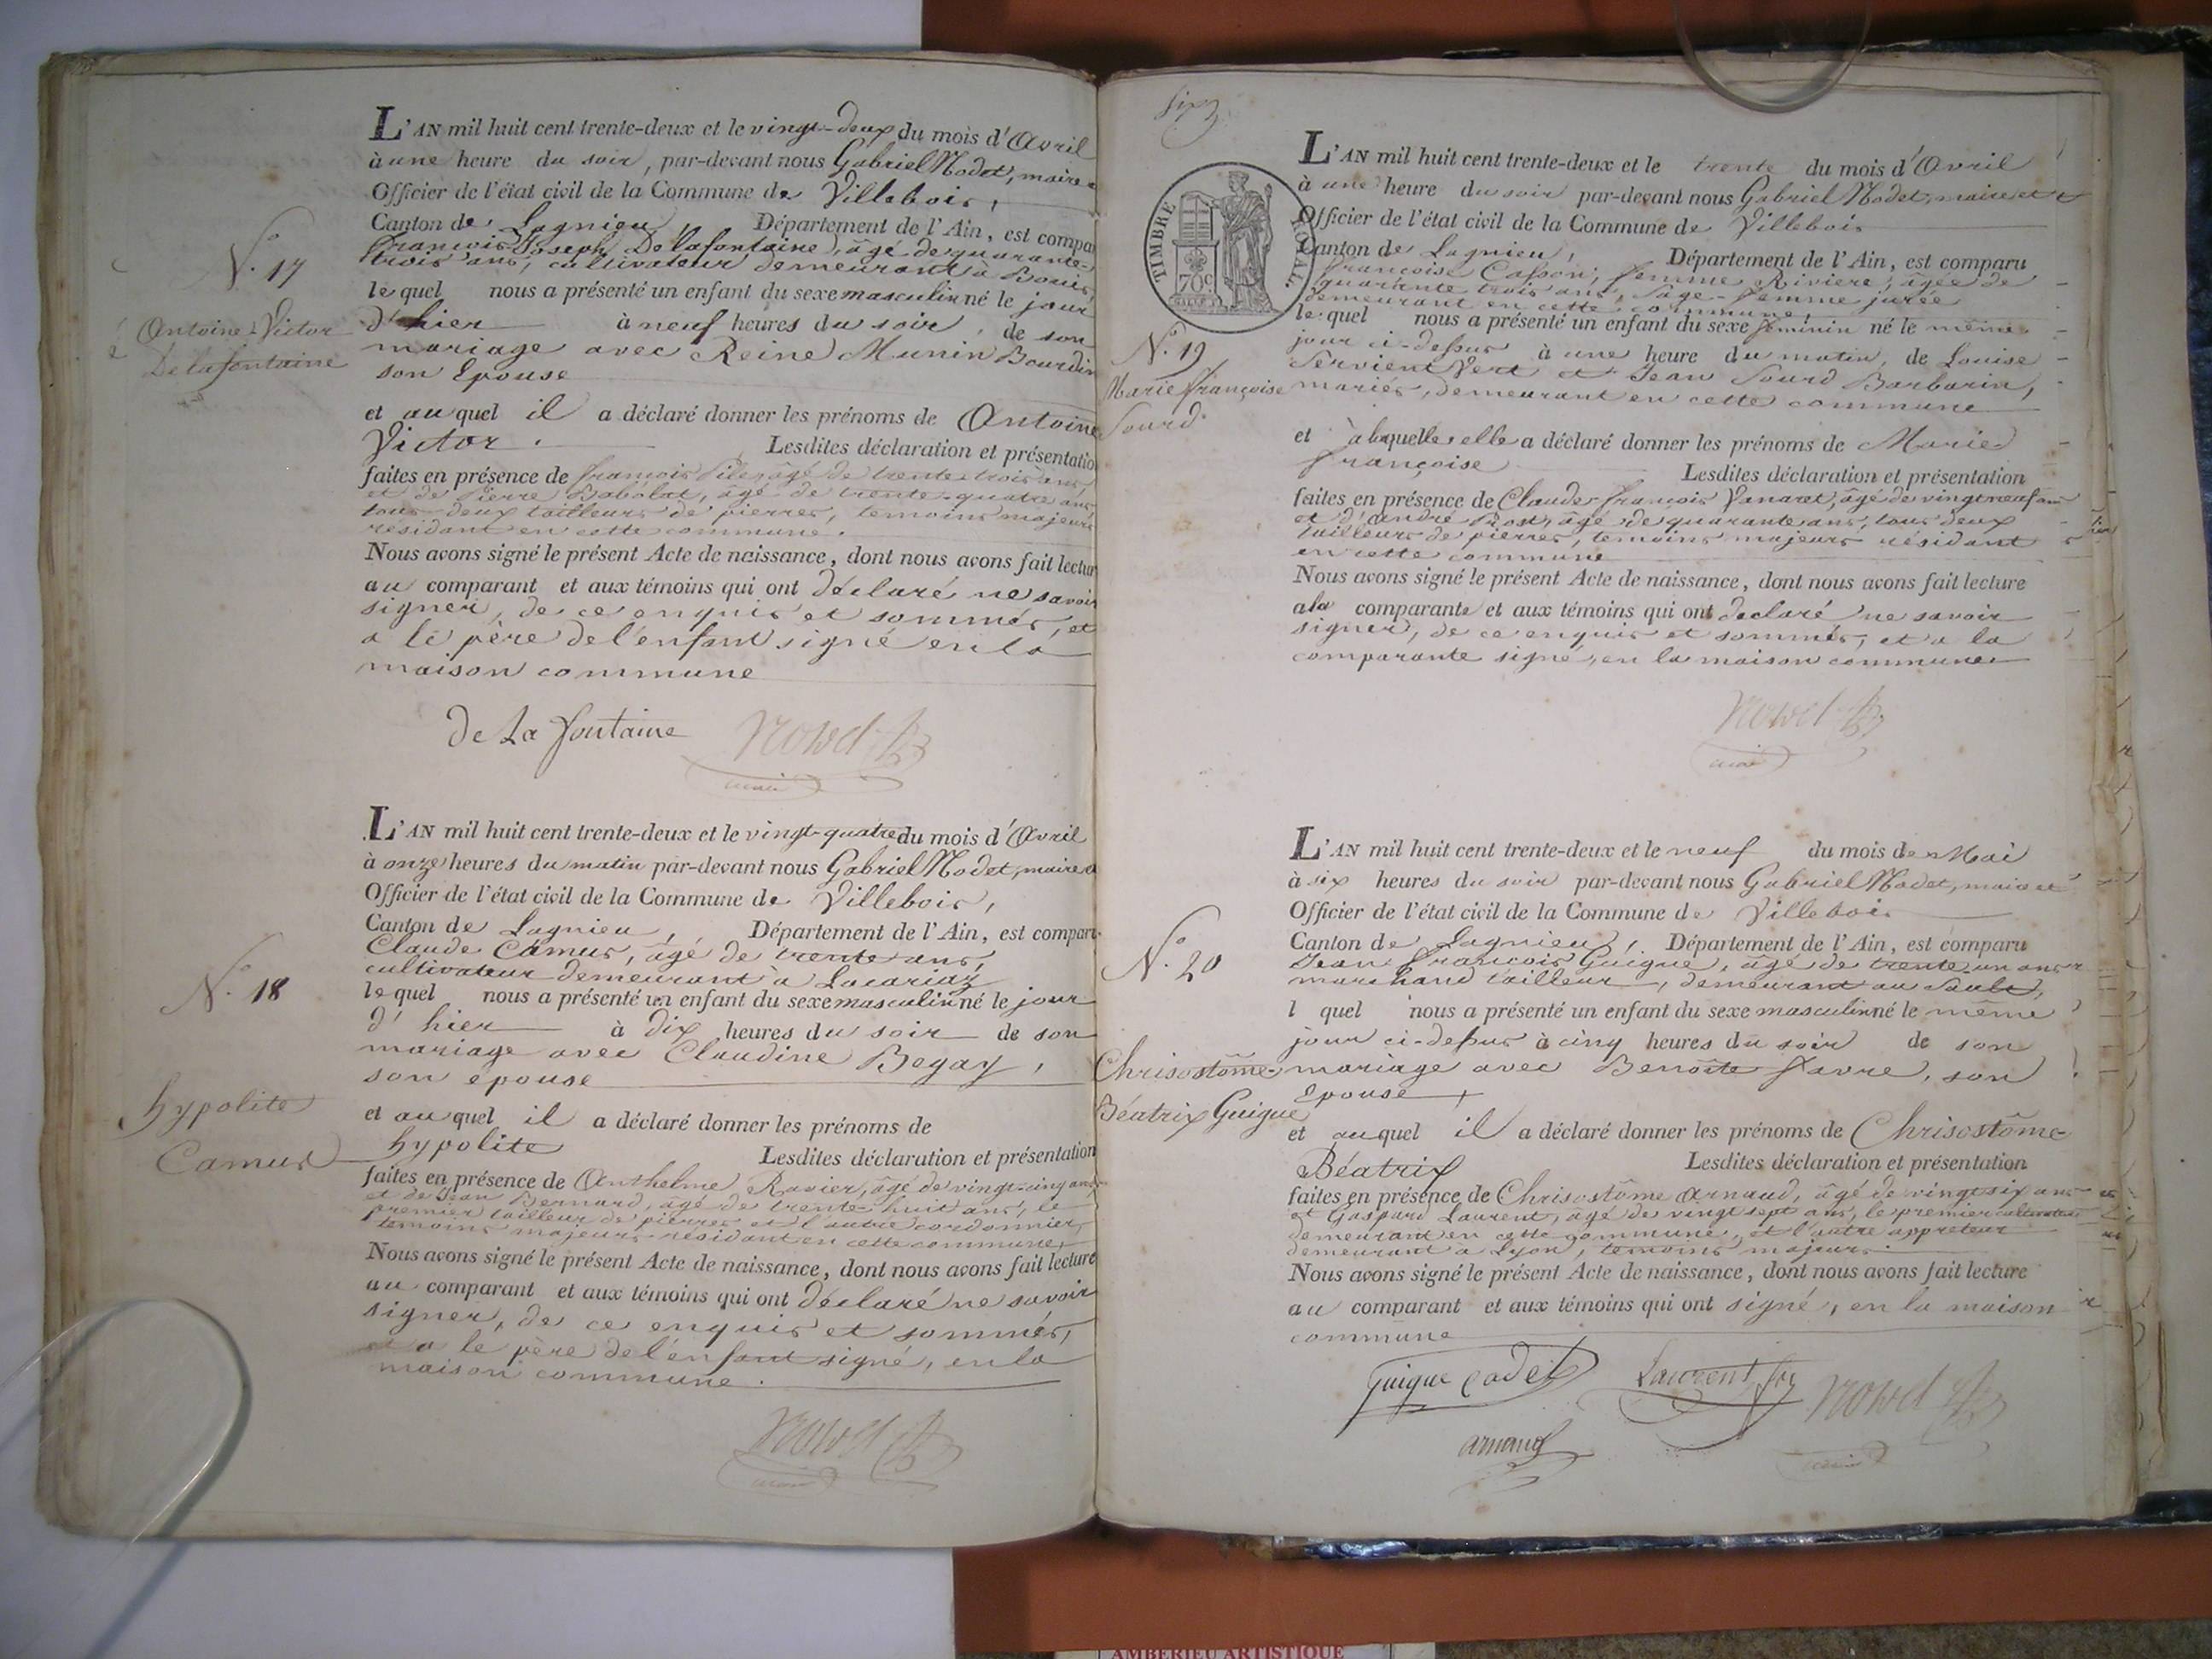 L'AN mil huit cent trente-deux et le vingt-deux du mois d'Avril
à une heure du soir, par-devant nous Gabriel Nodet, maire
Officier de l'état civil de la Commune de Villebois,
Canton de Lagnieu, Département de l'Ain, est compa
François Joseph Delafontaine, âgé de quarante-
trois ans, cultivateur demeurant à Bouis,
lequel nous a présenté un enfant du sexe masculin né le jour
d'hier à neuf heures du soir, de son
mariage avec Reine Munin Bourdin
son Epouse
et auquel il a déclaré donner les prénoms de Antoine
Victor. Lesdites déclaration et présentatio
faites en présence de françois âgé de trente trois ans
et de Pierre Babolat, âgé de trente-quatre ans
tous deux tailleurs de pierres, temoins majeurs
résidant en cette commune.
Nous avons signé le présent Acte de naissance, dont nous avons fait lectur
au comparant et aux témoins qui ont déclaré ne savoir
signer, de ce enquis et sommés, et
a le père de l'enfant signé en la
maison commune
N.° 17
Antoine-Victor
Delafontaine
De La fontaine Nodet
maire
L'AN mil huit cent trente-deux et le vingt-quatre du mois d'Avril
à onze heures du matin par-devant nous Gabriel Nodet, maire
Officier de l'état civil de la Commune de Villebois,
Canton de Lagnieu, Département de l'Ain, est compar
Claude Camus, âgé de trente ans,
cultivateur demeurant à Lacariaz
lequel nous a présenté un enfant du sexe masculin né le jour
d'hier à dix heures du soir de son
mariage avec Claudine Begay,
son épouse
et auquel il a déclaré donner les prénoms de
hypolite Lesdites déclaration et présentation
faites en présence de Anthelme Ravier, âgé de vingt-cinq ans
et de Jean Bernard, âgé de trente-huit ans, le
premier tailleur de pierres et l'autre cordonnier,
temoins majeurs résidant en cette commune,
Nous avons signé le présent Acte de naissance, dont nous avons fait lecture
au comparant et aux témoins qui ont déclaré ne savoir
signer, de ce enquis et sommés,
et a le père de l'enfant signé, en la
maison commune.
N.° 18
hypolite
Camus
Nodet
maire
six
TIMBRE ROYAL.
70c
L'AN mil huit cent trente-deux et le trente du mois d'Avril
à une heure du soir par-devant nous Gabriel Nodet, maire et
Officier de l'état civil de la Commune de Villebois
Canton de Lagnieu, Département de l'Ain, est comparu
françoise Casson, femme Riviere, âgée de
quarante trois ans, sage-femme jurée
demeurant en cette commune,
lequel nous a présenté un enfant du sexe feminin né le même
jour ci-dessus à une heure du matin, de Louise
Servient Vert et Jean Sourd Barbarin,
mariés, demeurant en cette commune
et à laquelle elle a déclaré donner les prénoms de Marie
françoise Lesdites déclaration et présentation
faites en présence de Claude-françois Vanaret, âgé de vingt neuf ans
et d'André Rost, âgé de quarante ans, tous deux
tailleurs de pierres, temoins majeurs résidant
en cette commune
Nous avons signé le présent Acte de naissance, dont nous avons fait lecture
a la comparante et aux témoins qui ont declaré ne savoir
signer, de ce enquis et sommés, et a la
comparante signé, en la maison commune
N.° 19
Marie françoise
Sourd
Nodet
maire
L'AN mil huit cent trente-deux et le neuf du mois de Mai
à six heures du soir par-devant nous Gabriel Nodet, maire et
Officier de l'état civil de la Commune de Villebois
Canton de Lagnieu, Département de l'Ain, est comparu
Jean François Guigue, âgé de trente-un ans
marchand tailleur, demeurant au Sault,
l quel nous a présenté un enfant du sexe masculin né le même
jour ci-dessus à cinq heures du soir de son
mariage avec Benoîte Favre, son
Epouse
et auquel il a déclaré donner les prénoms de Chrisostôme
Béatrix Lesdites déclaration et présentation
faites en présence de Chrisostôme Arnaud, âgé de vingt six ans
et Gaspard Laurent, âgé de vingt sept ans, le premier cultivateur
demeurant en cette commune, et l'autre appreteur
demeurant à Lyon, temoins majeurs.
Nous avons signé le présent Acte de naissance, dont nous avons fait lecture
au comparant et aux témoins qui ont signé, en la maison
commune
N.° 20
Chrisostôme-
Béatrix Guigue
Guigue cadet Laurent Nodet
arnaud maire
AMBERIEU ARTISTIQUE